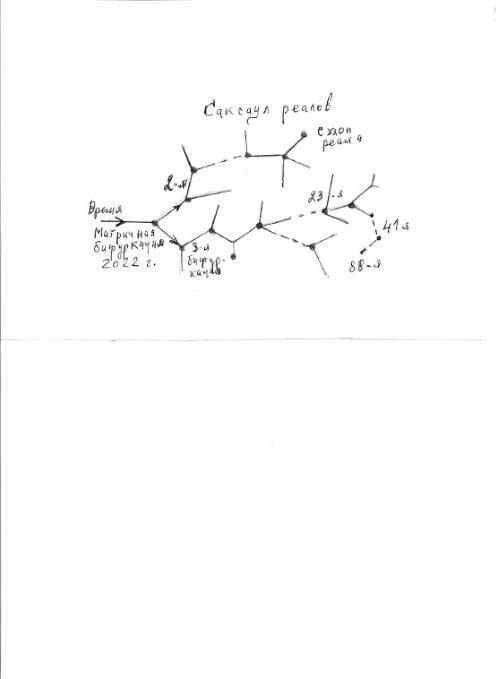 Саксаул реалов
Схлоп
реала
2-я
23-я
Время
41я
Матричная
бифуркация
2022 г.
3-я
бифур-
кация
88-я